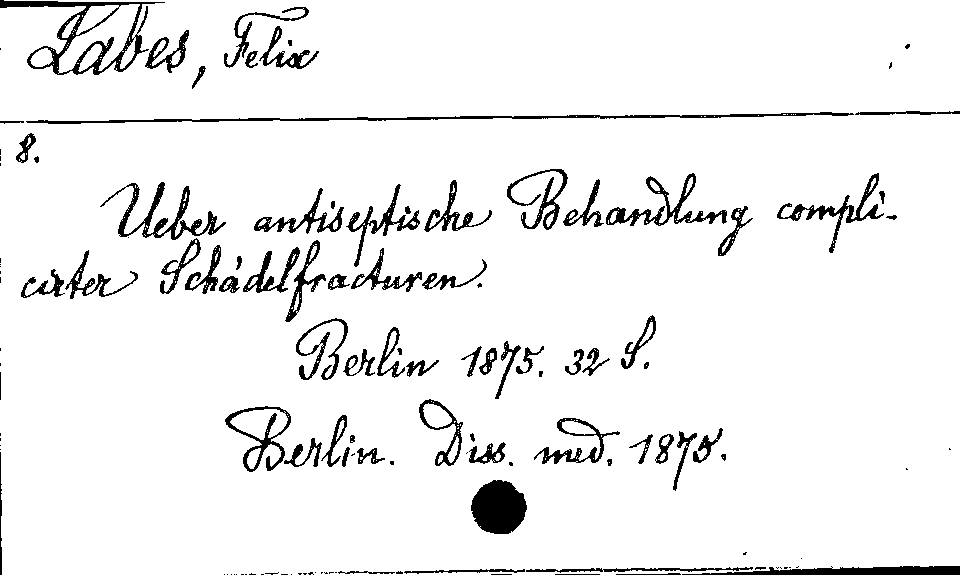 Labes, Felix
8.
Ueber antiseptische Behandlung compli-
cirter Schädelfracturen.
Berlin 1875. 32 S.
Berlin. Diss. med. 1875.